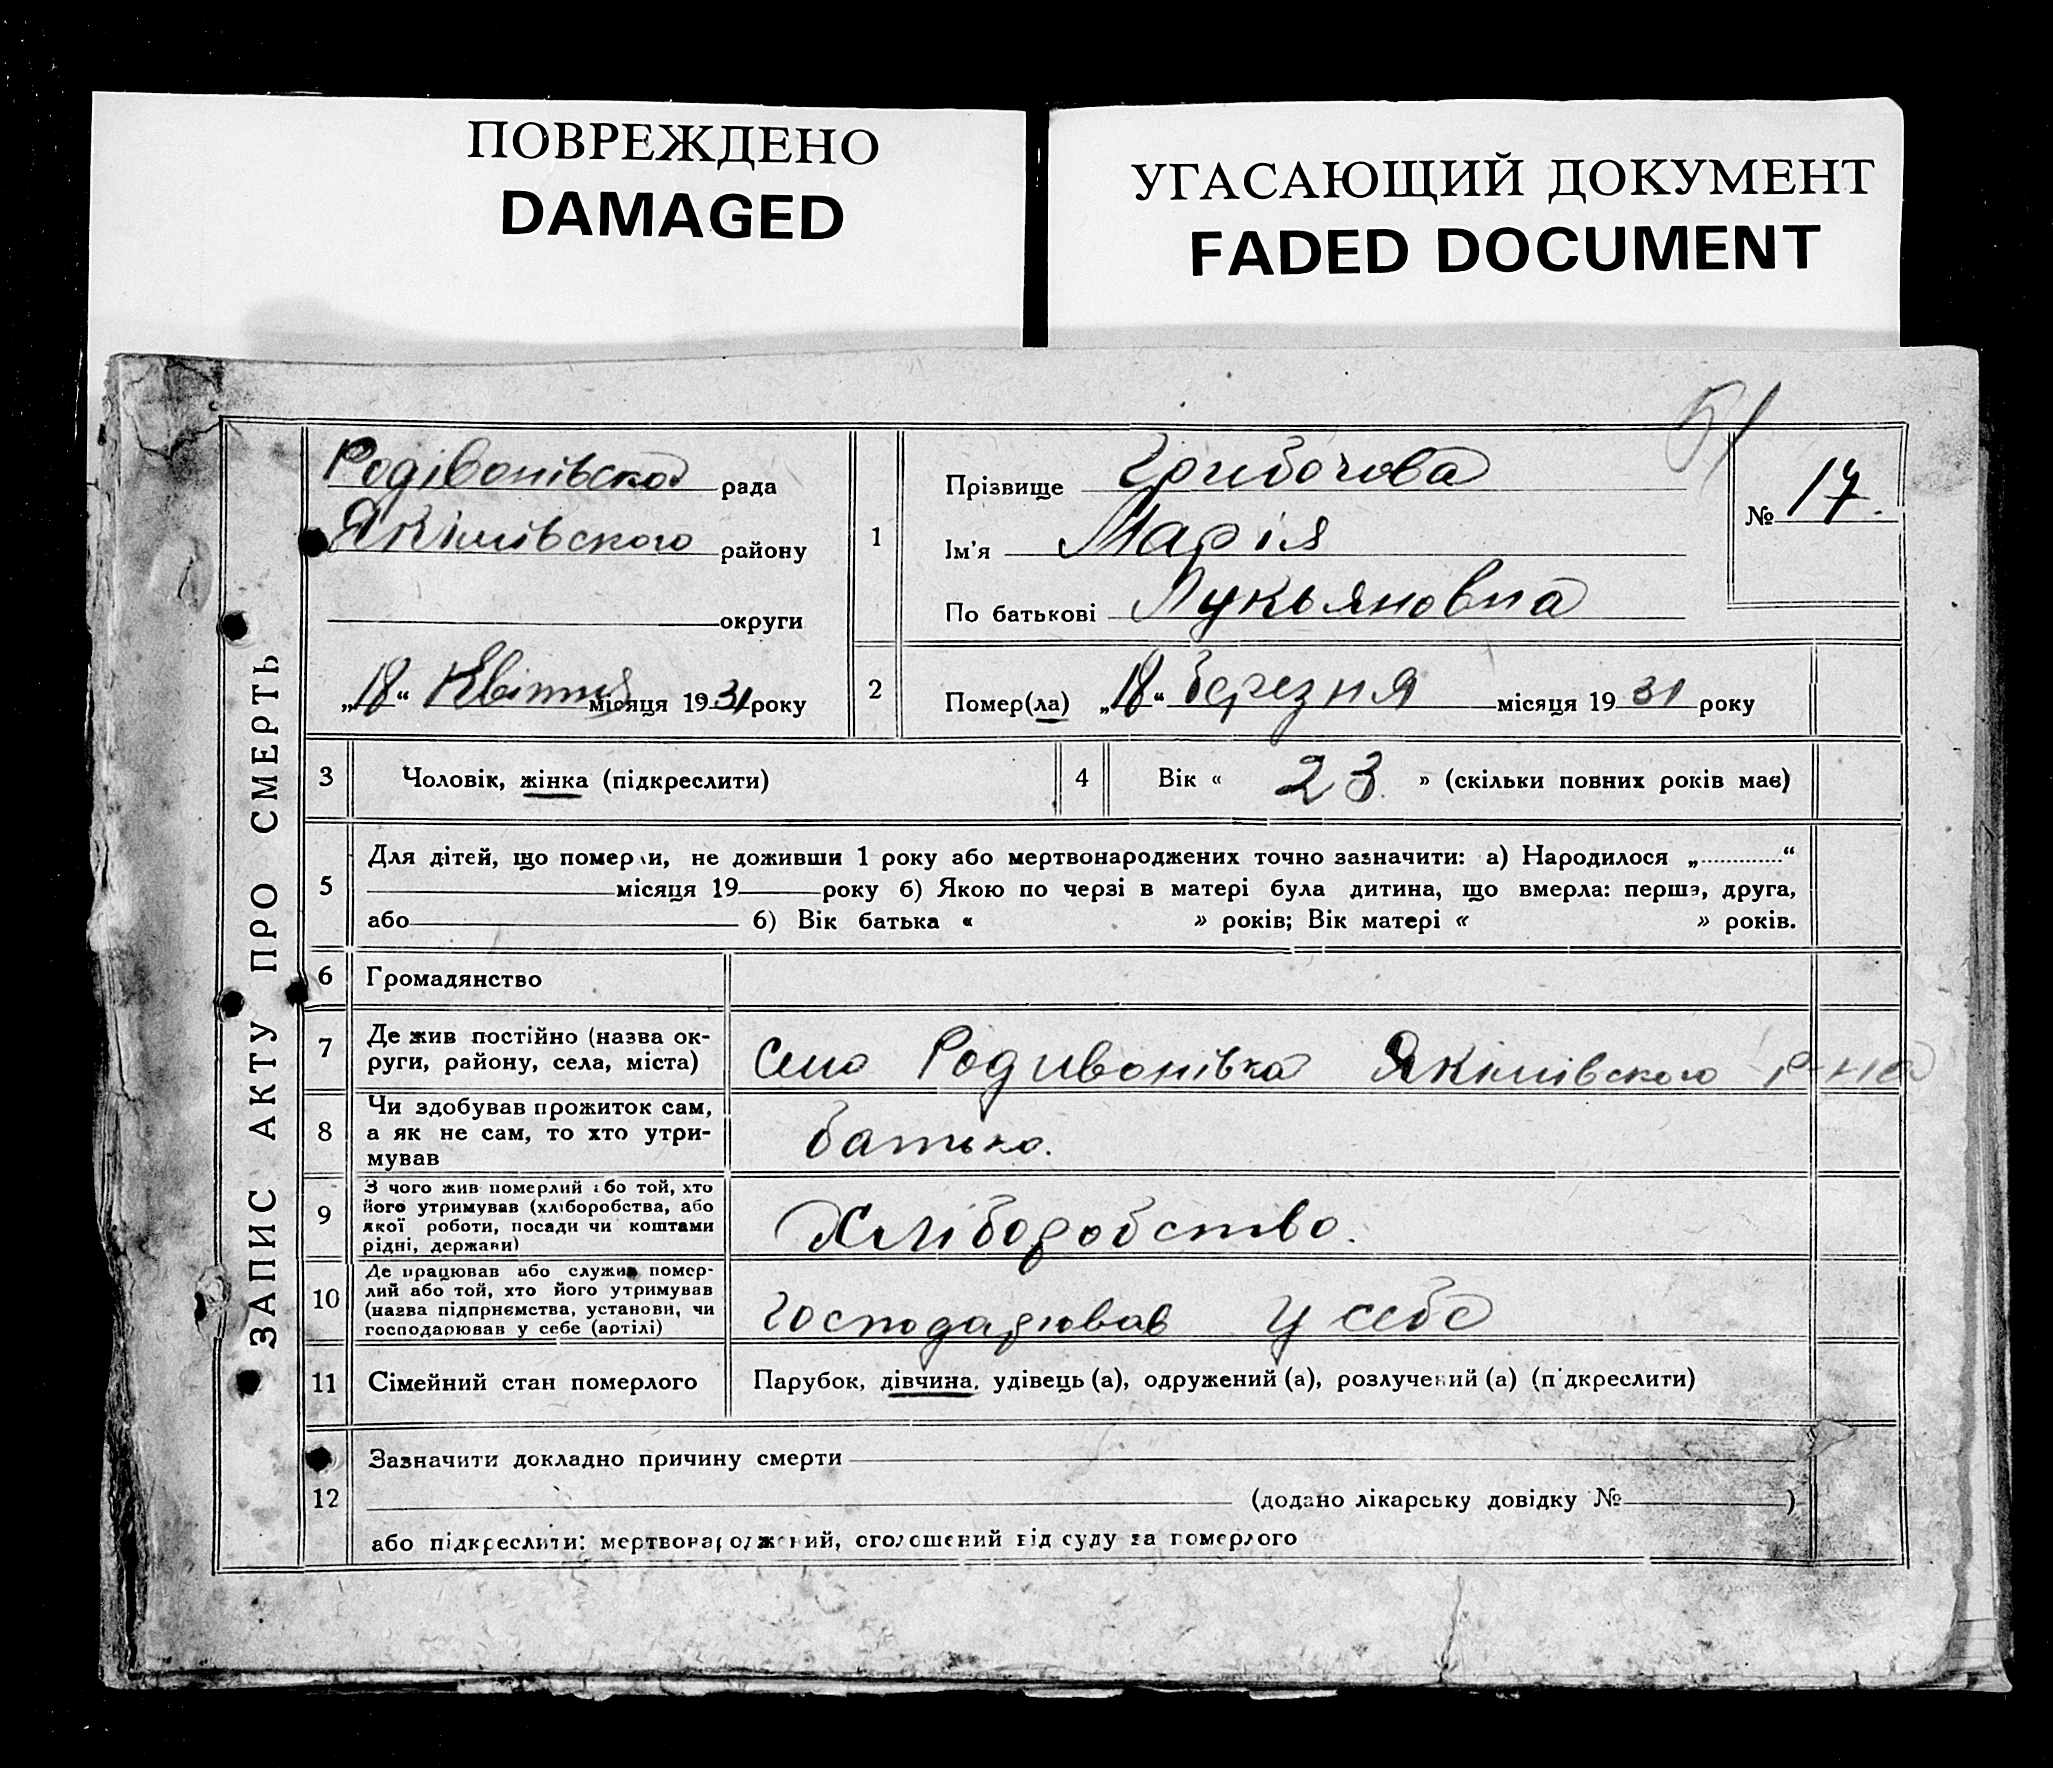 ПОВРЕЖДЕНО
DAMAGED
УГАСАЮЩИЙ ДОКУМЕНТ
FADED DOCUMENT
51
ЗАПИС АКТУ ПРО СМЕРТЬ
Родівонівська рада
Якімівського району
округи
„18“ Квітня місяця 1931 року
1
Прізвище Грибочова
Ім'я Марія
По батькові Лукьяновна
№ 17.
2
Помер(ла) „18“ березня місяця 1931 року
3 Чоловік, жінка (підкреслити)
4 Вік « 23 » (скільки повних років має)
5
Для дітей, що померли, не доживши 1 року або мертвонароджених точно зазначити: а) Народилося „.............“
місяця 19 року б) Якою по черзі в матері була дитина, що вмерла: перша, друга,
або б) Вік батька « » років; Вік матері « » років.
6 Громадянство
7
Де жив постійно (назва ок-
руги, району, села, міста)
Село Родивонівка Якімівського р-на
8
Чи здобував прожиток сам,
а як не сам, то хто утри-
мував
батько.
9
З чого жив померлий або той, хто
його утримував (хліборобства, або
якої роботи, посади чи коштами
рідні, держави)
Хліборобство.
10
Де працював або служив помер-
лий або той, хто його утримував
(назва підприємства, установи, чи
господарював у себе (артілі)
господарював у себе
11 Сімейний стан померлого
Парубок, дівчина, удівець (а), одружений (а), розлучений (а) (підкреслити)
12
Зазначити докладно причину смерти
(додано лікарську довідку № )
або підкреслити: мертвонароджений, оголошений від суду за померлого